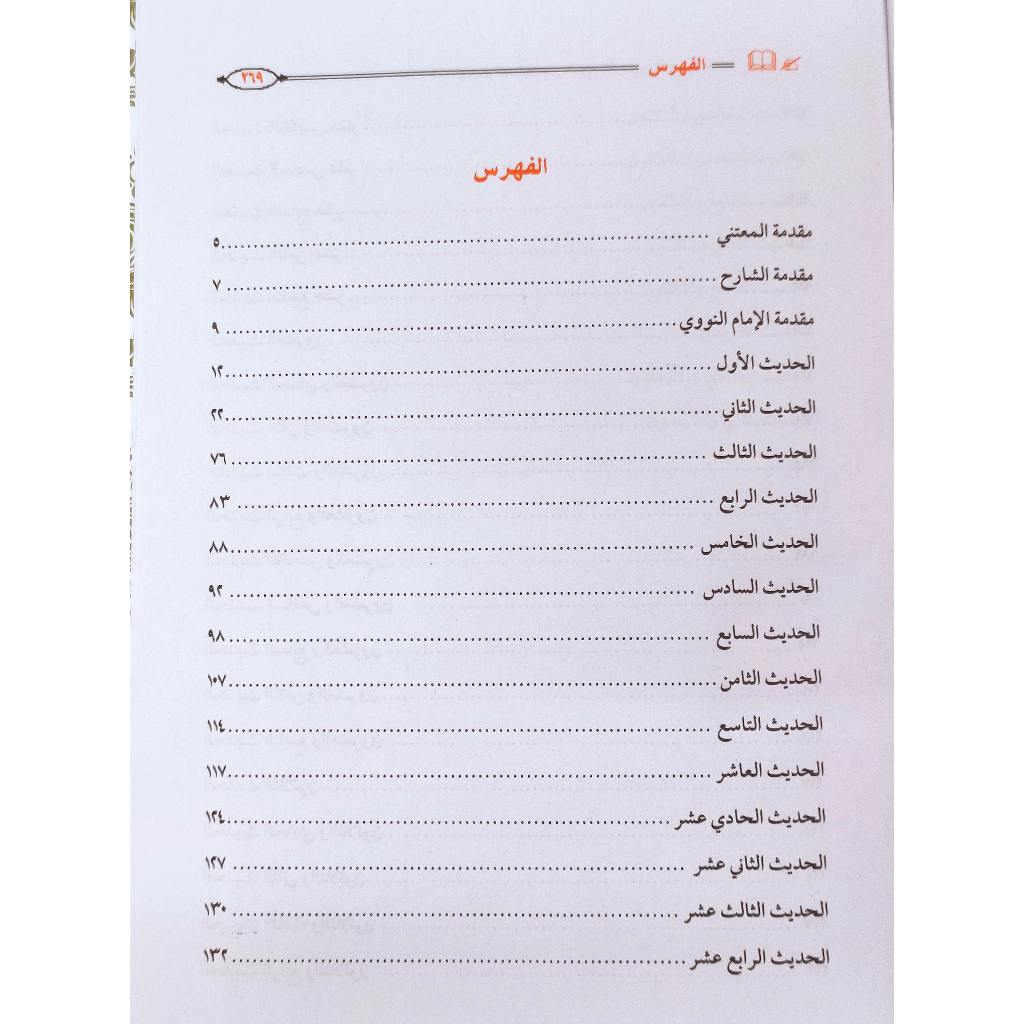 الفهرس ٢٦٩
الفهرس
مقدمة المعتني ........ ٥
مقدمة الشارح ........ ٧
مقدمة الإمام النووي ........ ٩
الحديث الأول ........ ١٢
الحديث الثاني ........ ٢٢
الحديث الثالث ........ ٧٦
الحديث الرابع ........ ٨٣
الحديث الخامس ........ ٨٨
الحديث السادس ........ ٩٢
الحديث السابع ........ ٩٨
الحديث الثامن ........ ١٠٧
الحديث التاسع ........ ١١٤
الحديث العاشر ........ ١١٧
الحديث الحادي عشر ........ ١٢٤
الحديث الثاني عشر ........ ١٢٧
الحديث الثالث عشر ........ ١٣٠
الحديث الرابع عشر ........ ١٣٢